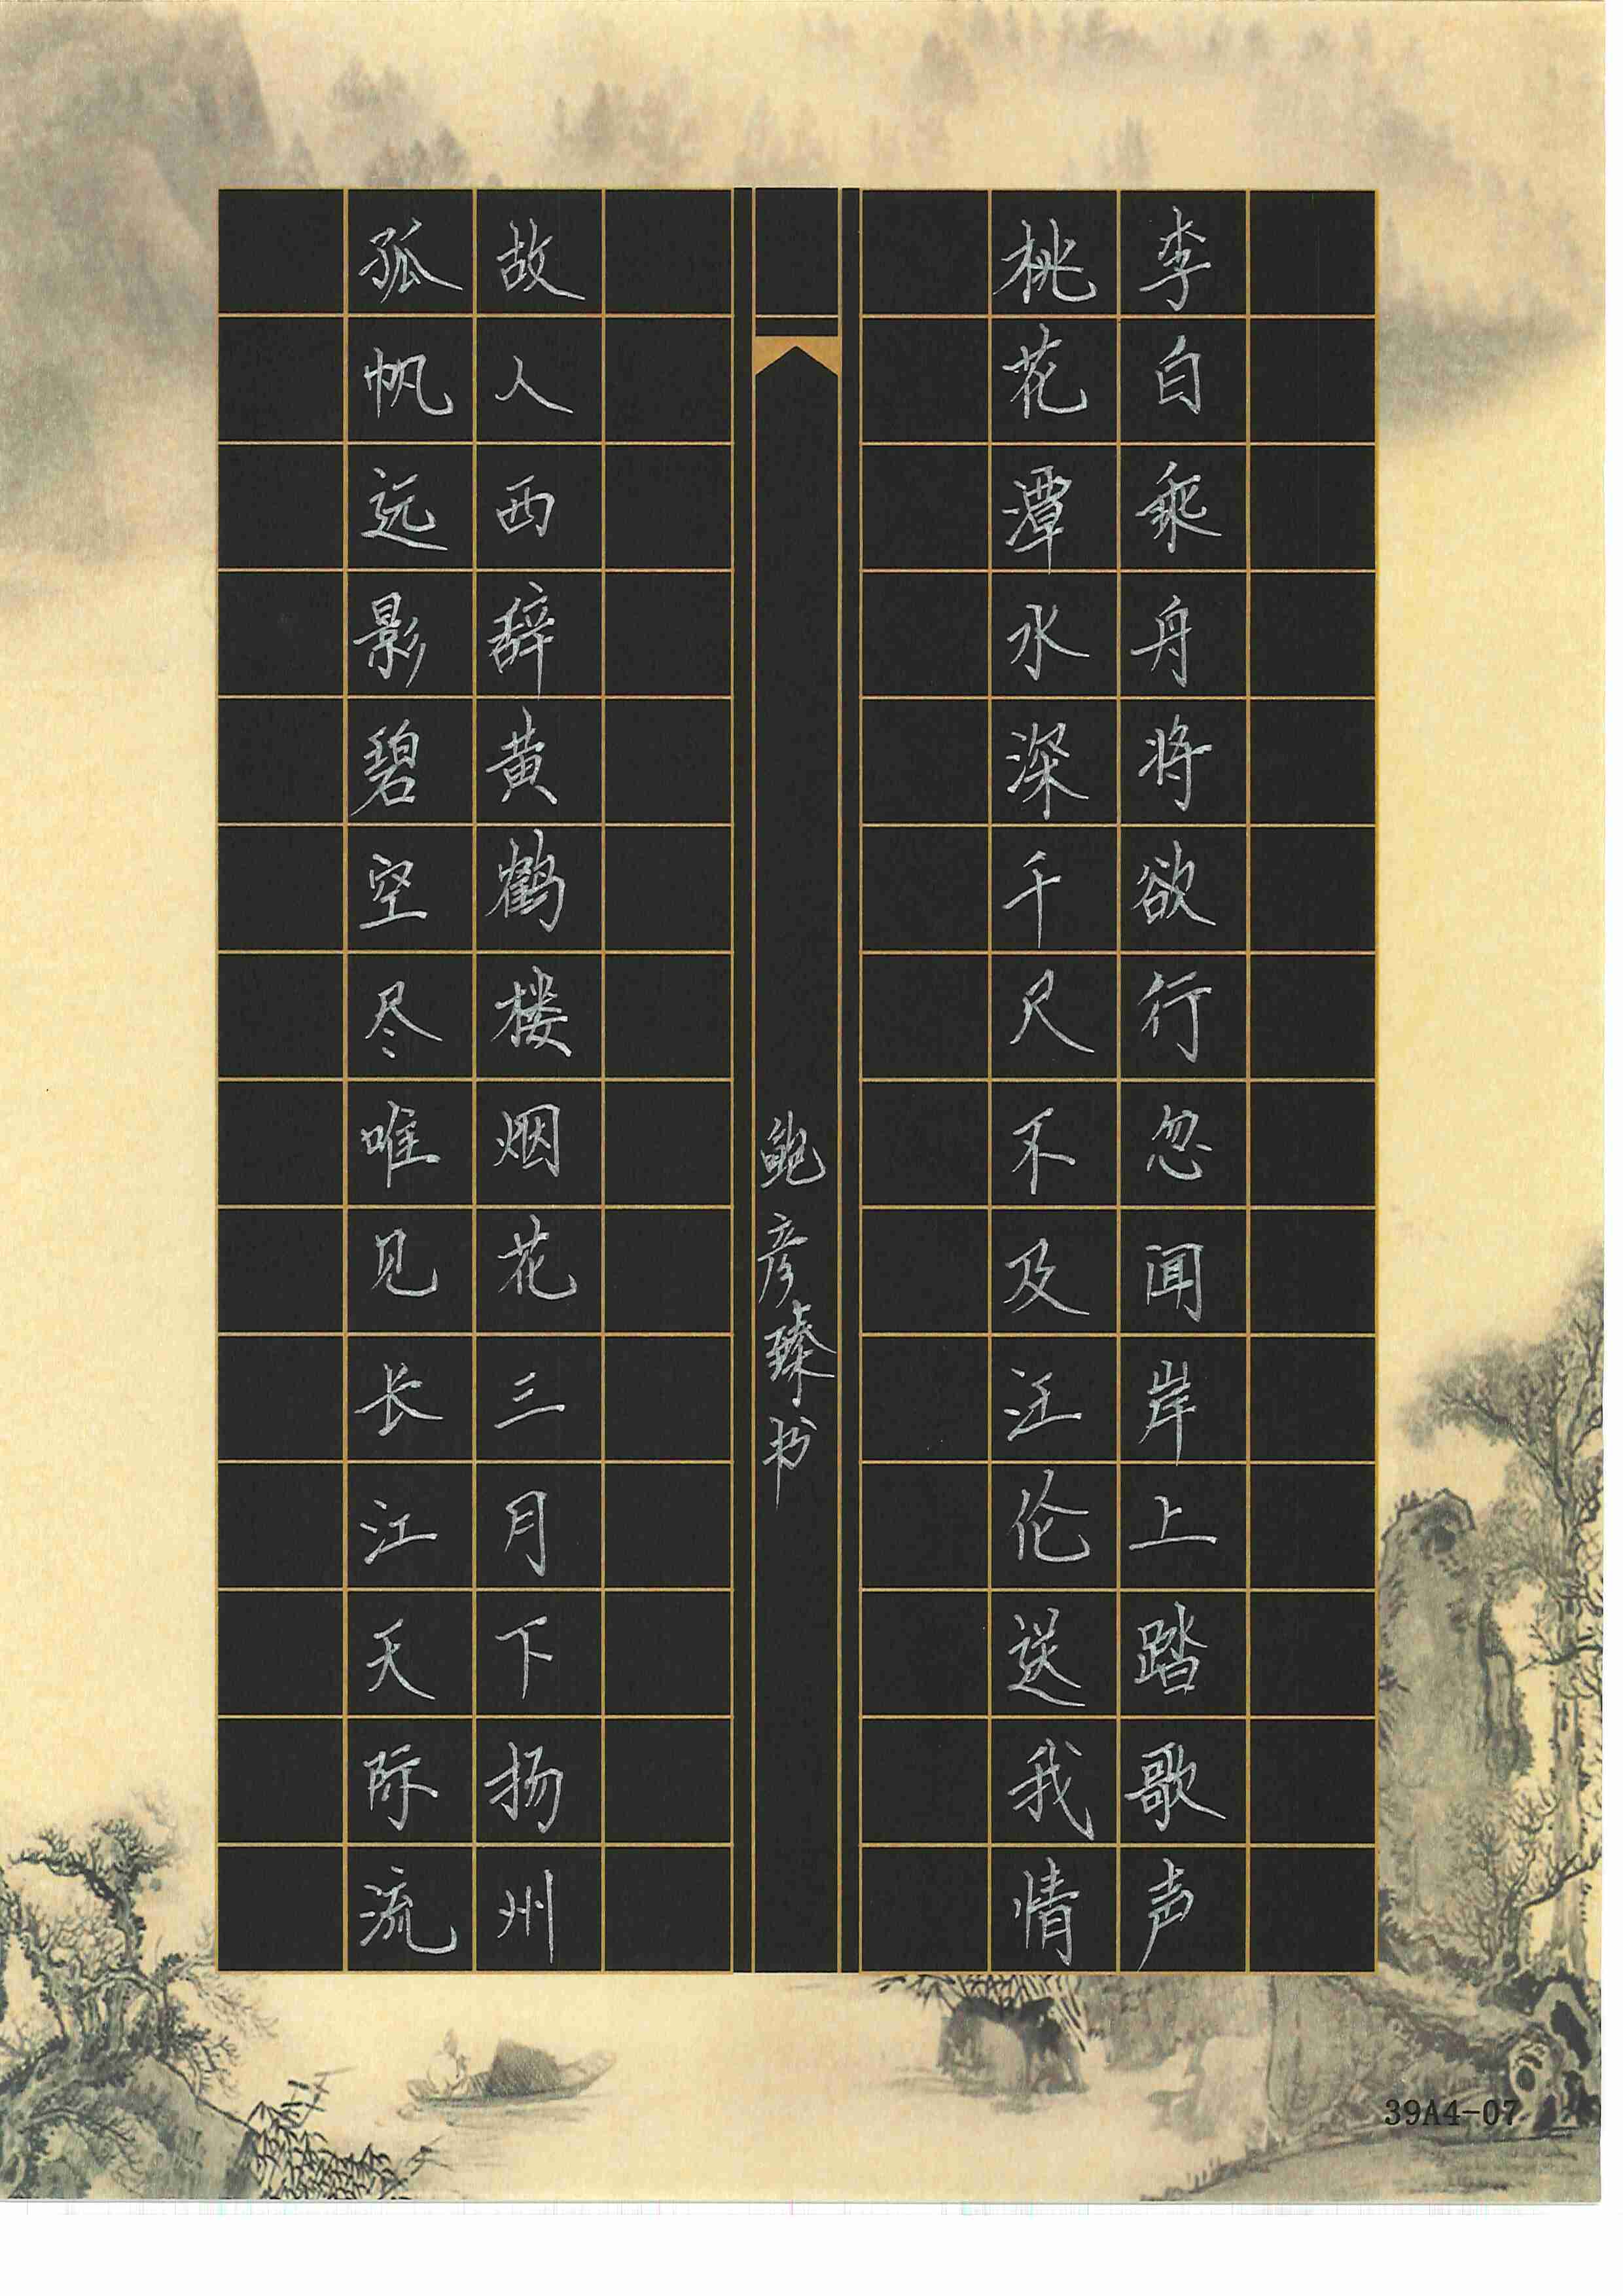 李白乘舟将欲行忽闻岸上踏歌声
桃花潭水深千尺不及汪伦送我情
鲍彦臻书
故人西辞黄鹤楼烟花三月下扬州
孤帆远影碧空尽唯见长江天际流
39A4-07